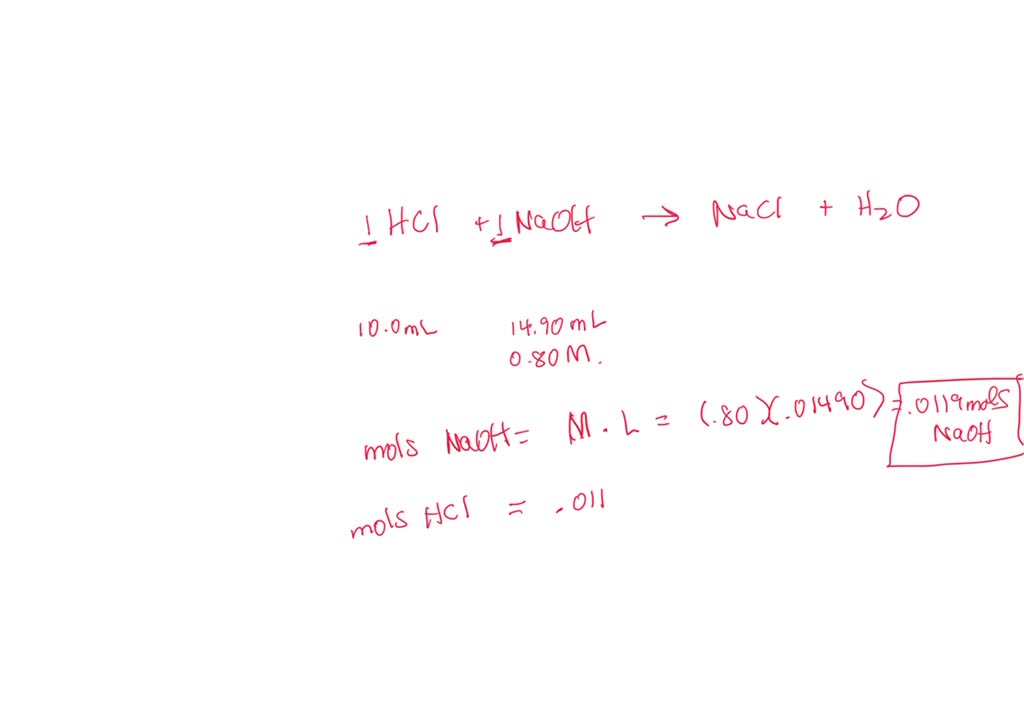 1 HCl + 1 NaOH → NaCl + H₂O
10.0mL 14.90mL
0.80 M.
mols NaOH = M · L = (.80)(.01490) = .0119 mols
NaOH
mols HCl = .011